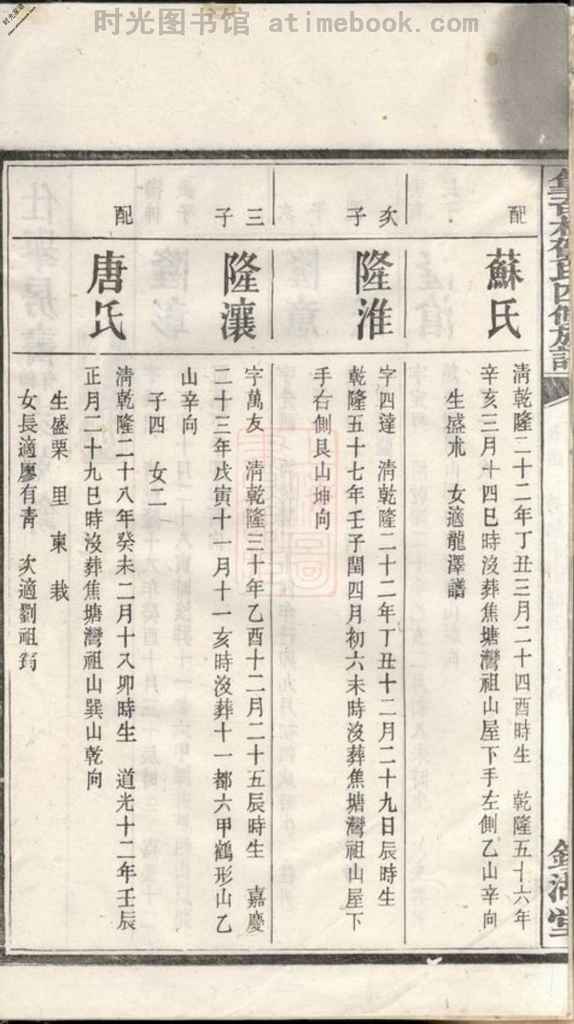 时光图书馆 atimebook.com
配
蘇氏
清乾隆二十二年丁丑三月二十四酉時生 乾隆五十六年
辛亥三月十四巳時沒葬焦塘灣祖山屋下手左側乙山辛向
生盛朮 女適龍澤譜
次子
隆淮
字四達 清乾隆二十二年丁丑十二月二十九日辰時生
乾隆五十七年壬子閏四月初六未時沒葬焦塘灣祖山屋下
手右側艮山坤向
三子
隆瀼
字萬友 清乾隆三十年乙酉十二月二十五辰時生 嘉慶
二十三年戊寅十一月十一亥時沒葬十一都六甲鶴形山乙
山辛向
子四 女二
配
唐氏
清乾隆二十八年癸未二月十八卯時生 道光十二年壬辰
正月二十九巳時沒葬焦塘灣祖山巽山乾向
生盛栗 里 東 栽
女長適廖有青 次適劉祖筠